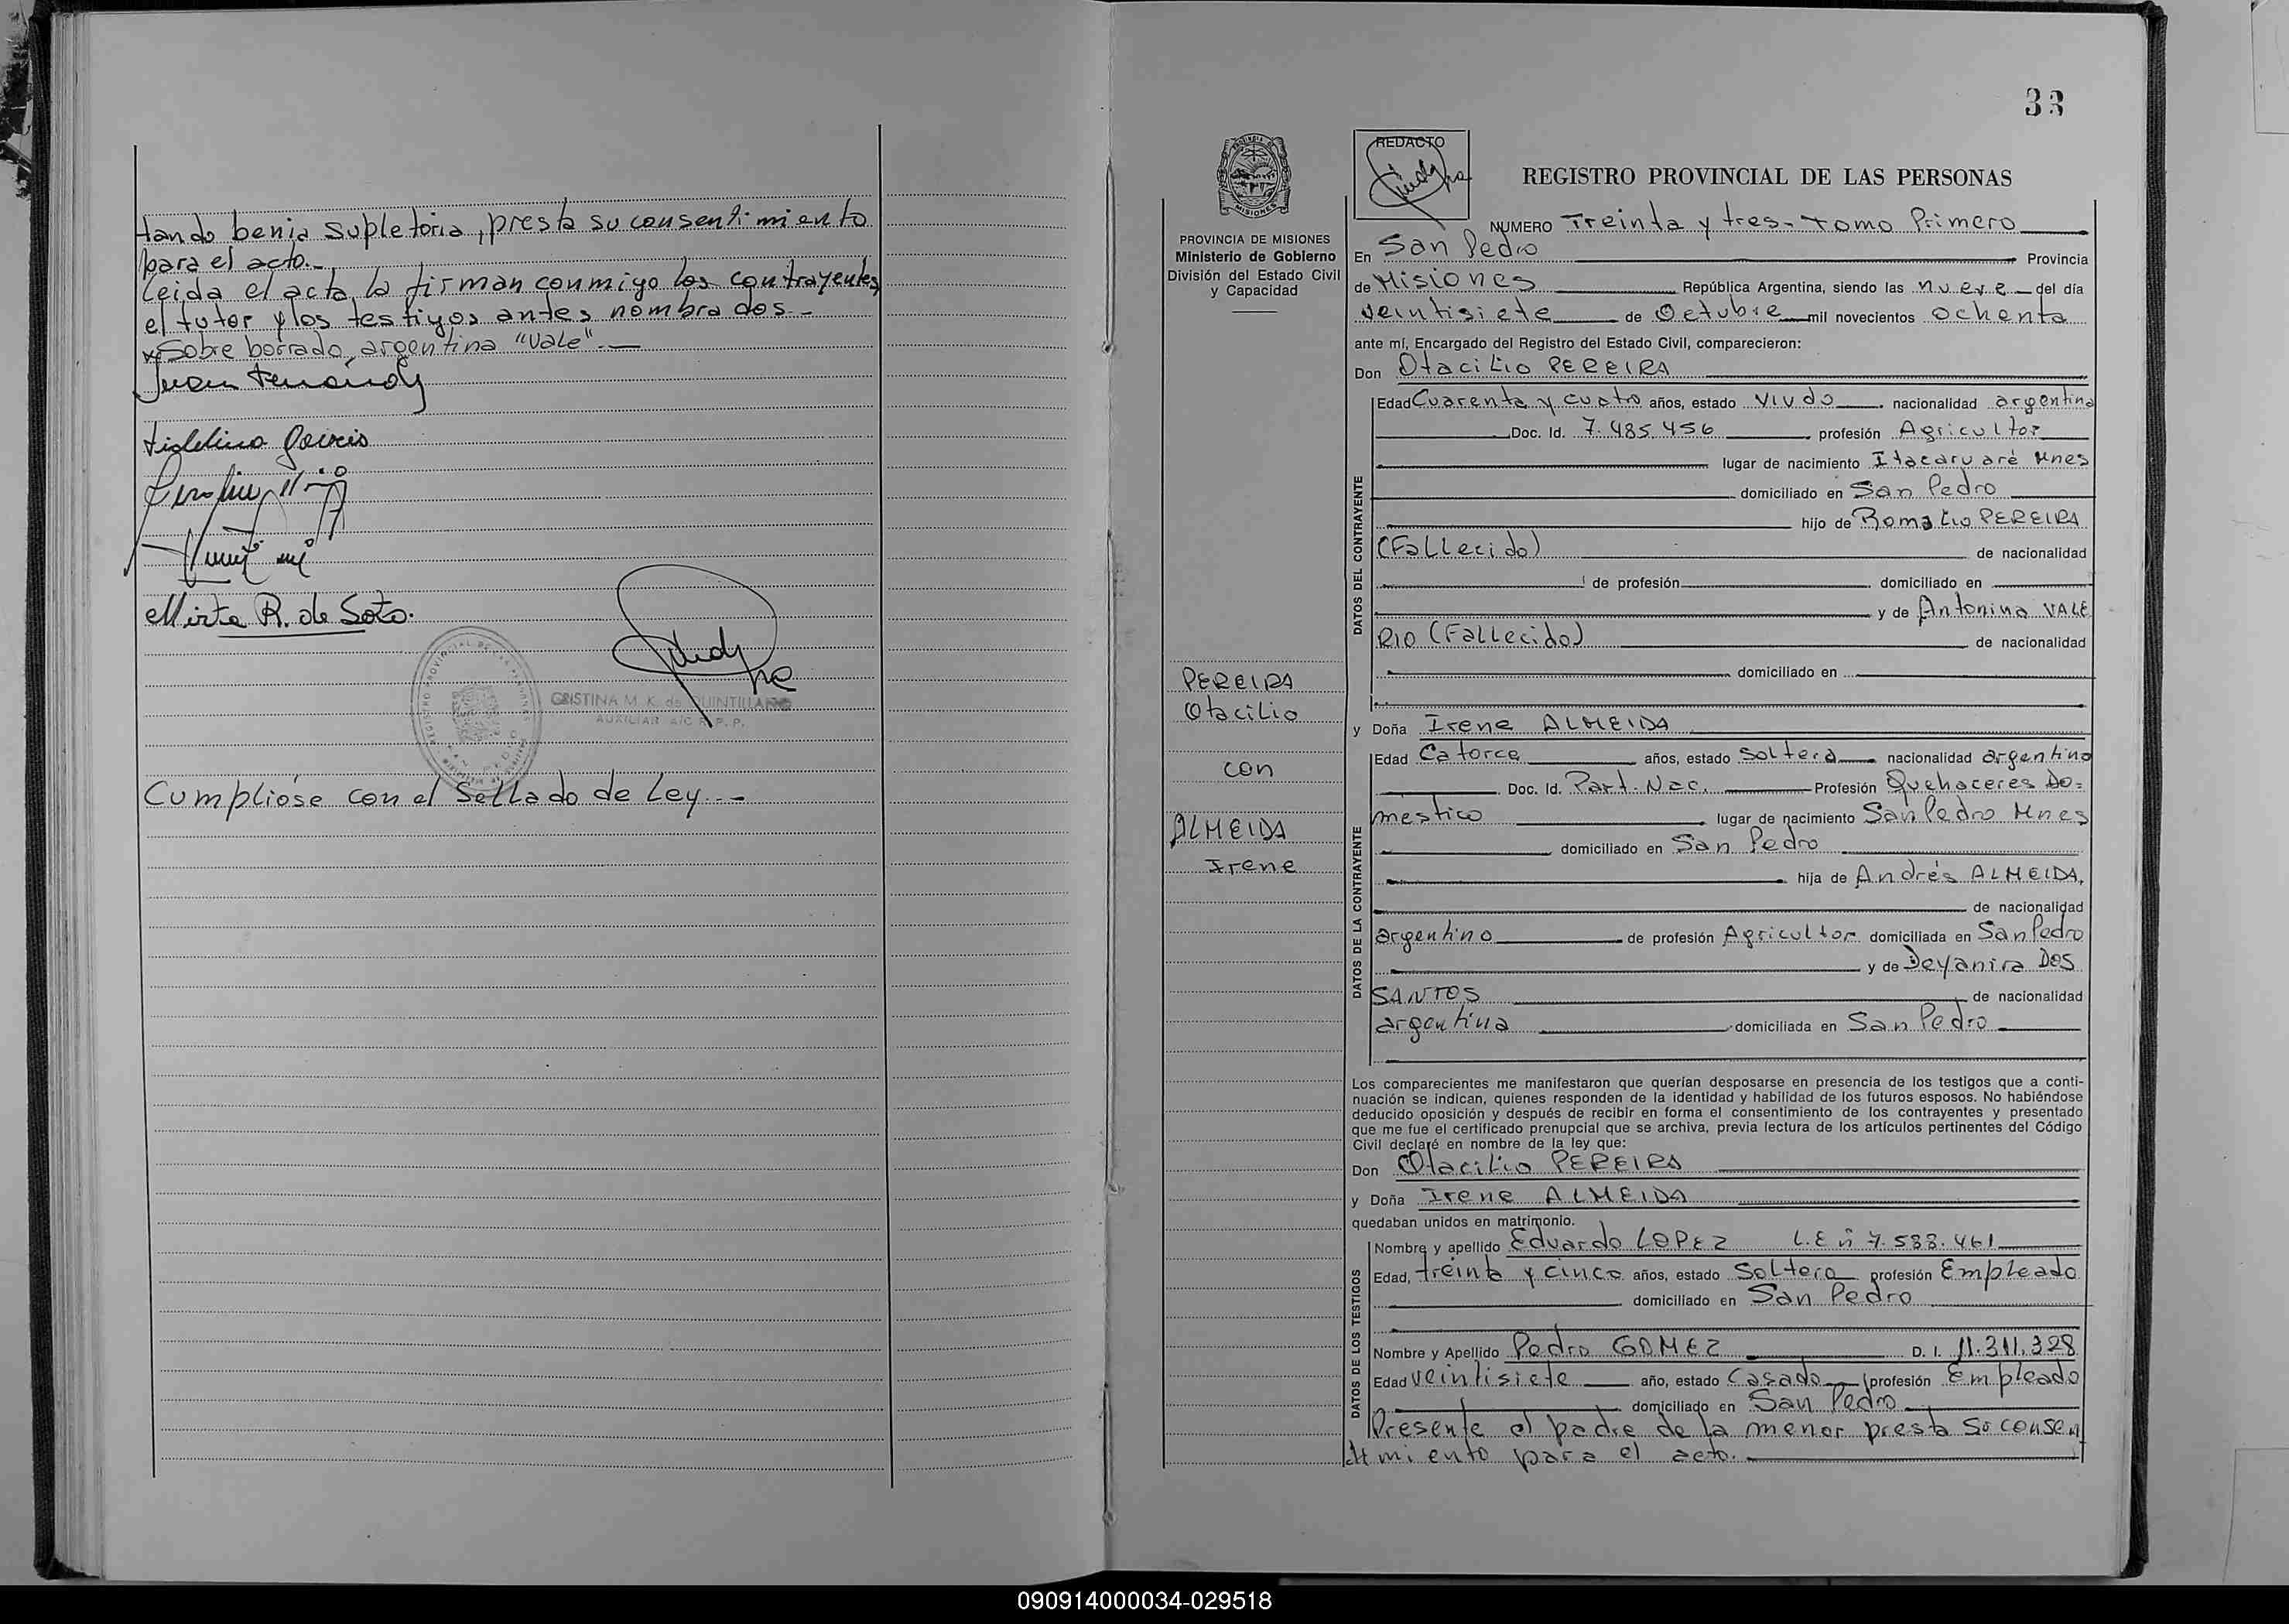 tando benia supletoria, presta su consentimiento
para el acto.-
Leida el acta, la firman conmigo los contrayentes,
el tutor y los testigos antes nombrados.-
Sobre borrado, argentina "vale".-
Mirta R. de Soto.
CRISTINA M. K. de QUINTILLANO
AUXILIAR A/C R. P. P.
Cumplióse con el Sellado de Ley.-
33
REDACTO
REGISTRO PROVINCIAL DE LAS PERSONAS
MISIONES
PROVINCIA DE MISIONES
Ministerio de Gobierno
División del Estado Civil
y Capacidad
PEREIRA
Otacilio
con
ALMEIDA
Irene
NUMERO Treinta y tres- Tomo Primero
En San Pedro Provincia
de Misiones República Argentina, siendo las nueve del día
veintisiete de Octubre mil novecientos ochenta
ante mí, Encargado del Registro del Estado Civil, comparecieron:
Don Otacilio PEREIRA
DATOS DEL CONTRAYENTE
Edad Cuarenta y cuatro años, estado viudo nacionalidad argentina
Doc. Id. 7.485.456 profesión Agricultor
lugar de nacimiento Itacaruaré Mnes
domiciliado en San Pedro
hijo de Romalio PEREIRA
(Fallecido) de nacionalidad
de profesión domiciliado en
y de Antonina VALE
RIO (Fallecida) de nacionalidad
domiciliado en
y Doña Irene ALMEIDA
DATOS DE LA CONTRAYENTE
Edad Catorce años, estado Soltera nacionalidad argentina
Doc. Id. Part. Nac. Profesión Quehaceres Do=
mestico lugar de nacimiento San Pedro Mnes
domiciliado en San Pedro
hija de Andrés ALMEIDA,
de nacionalidad
argentino de profesión Agricultor domiciliada en San Pedro
y de Deyanira DOS
SANTOS de nacionalidad
argentina domiciliada en San Pedro
Los comparecientes me manifestaron que querían desposarse en presencia de los testigos que a conti-
nuación se indican, quienes responden de la identidad y habilidad de los futuros esposos. No habiéndose
deducido oposición y después de recibir en forma el consentimiento de los contrayentes y presentado
que me fue el certificado prenupcial que se archiva, previa lectura de los artículos pertinentes del Código
Civil declaré en nombre de la ley que:
Don Otacilio PEREIRA
y Doña Irene ALMEIDA
quedaban unidos en matrimonio.
DATOS DE LOS TESTIGOS
Nombre y apellido Eduardo LOPEZ L.E n 7.588.461
Edad, treinta y cinco años, estado Soltero profesión Empleado
domiciliado en San Pedro
Nombre y Apellido Pedro GOMEZ D. I. 11.311.328
Edad veintisiete año, estado Casado profesión Empleado
domiciliado en San Pedro
Presente el padre de la menor presta su consen
timiento para el acto.
090914000034-029518